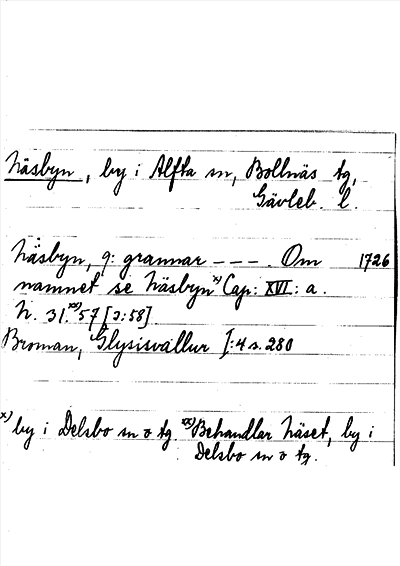 Näsbyn, by i Alfta sn, Bollnäs tg,
Gävleb. l.
Näsbyn, 9: grannar – – –. Om 1726
namnet se Näsbyn x) Cap: XVI: a.
N. 31. xx) 57 [ɔ: 58]
Broman, Glysisvallur I: 4 s. 280
x) by i Delsbo sn o tg. xx) Behandlar Näset, by i
Delsbo sn o tg.